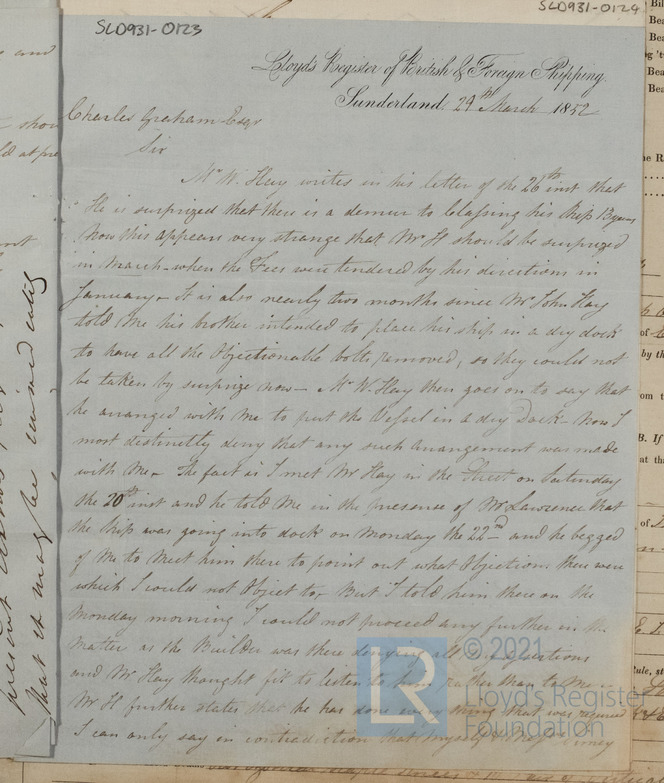 SLD931-0123
SLD931-0124
Lloyd's Register of British & Foreign Shipping.
Sunderland 29th March 1852
Charles Graham Esqr
Sir
Mr W. Hay writes in his letter of the 26th inst that
He is surprized that there is a demur to Classing his Ship 13 years
Now this appears very strange that Mr H should be surprized
in March when the Fees were tendered by his directions in
January - it is also nearly two months since Mr John Hay
told Me his brother intended to place his ship in a dry dock
to have all the Objectionable bolts removed, so they could not
be taken by surprize now - Mr W. Hay then goes on to say that
he arranged with Me to put the Vessel in a dry Dock - Now I
most distinctly deny that any such arrangement was made
with Me. The fact is I met Mr Hay in the Street on Saturday
the 20th inst and he told Me in the presence of Mr Lawrence that
the Ship was going into dock on Monday the 22nd and he begged
of Me to Meet him there to point out what Objections there were
which I could not Object to, But I told him there on the
Monday morning I could not proceed any further in the
Matter as the Builder was there denying all
and Mr Hay thought fit to listen to rather than to Me
Mr H further states that he has done every thing that was required
I can only say in contradiction that Myself &
© 2021
LR
Lloyd's Register
Foundation
present
that it may be